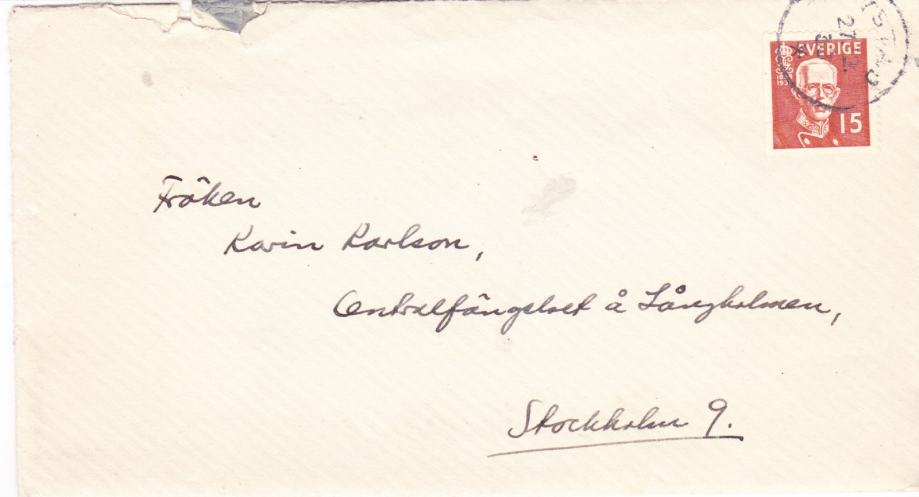 YSTAD
27
SVERIGE
15
Fröken
Karin Karlson,
Centralfängelset å Långholmen,
Stockholm 9.